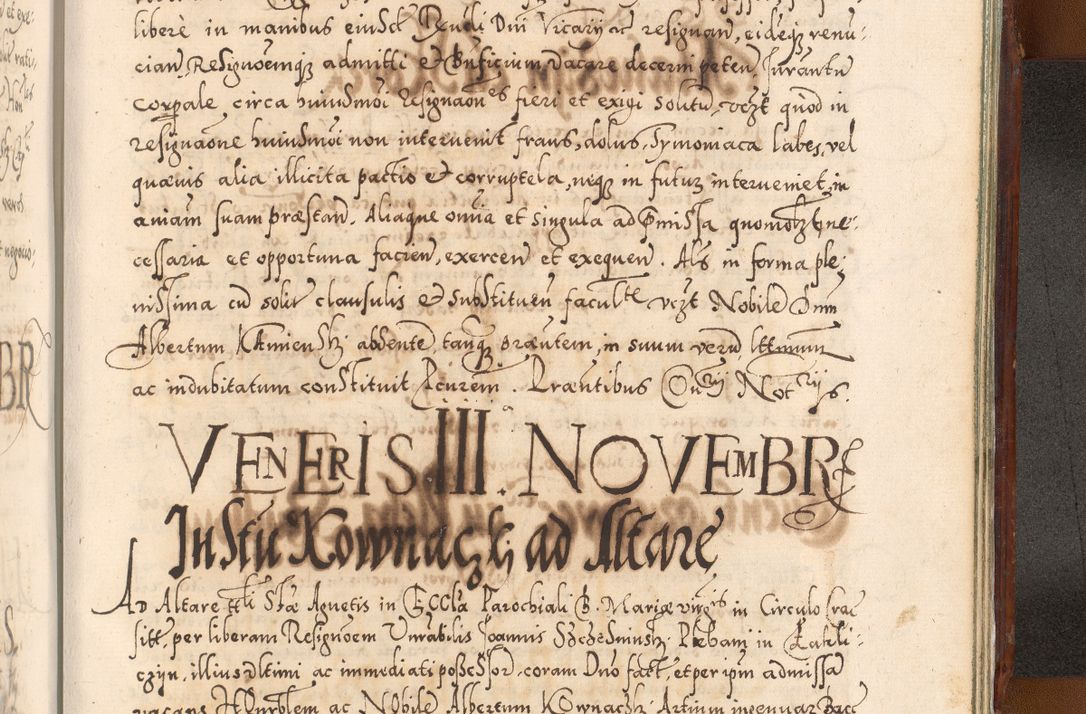 libere in manibus eiusd Rndi Dni Vicarij ac resignan, eideq̃ renu:
cian, Resignõemq̃ admitti et Bnficium vacare decerni peten, Jurantu
corpale circa huiusmoi resignaon͂es fieri et exigi solitũ, vczt quod in
resignaõne huiusmoi non intervenit fraus, dolus, Symoniaca labes, vel
quævis alia illicita pactio et corruptela, neq̃ in futuꝝ interveniet, in
aniam suam præstan. Aliaque omnia et singula ad pmissa quomotzt ne:
cessaria et opportuna facien, exercen et exequen. Als in forma ple:
nissima cũ solit clausulis et substituen facultte vczt Nobile Dnm
Albertum Kamiensk absente, tanq̃ præntem, in suum verũ lttimum
ac indubitatum constituit Pcurem. Præntibus Quij Notrijs.
VENERIS III. NOVEMBR
Instu Kownaczk ad Altare
AD Altare ttli Stæ Agnetis in Eccla Parochiali B. Mariæ virgis in Circulo Crac
sitt, per liberam Resignõem Vnrabilis Joannis Plebani in
czyn, illius vltimi ac immediati possessor, coram Dno fact, et per ipm admissã
vacans Hrnrblem ac Nobile Albertum Kownaczk Artium ingenuar Bacc